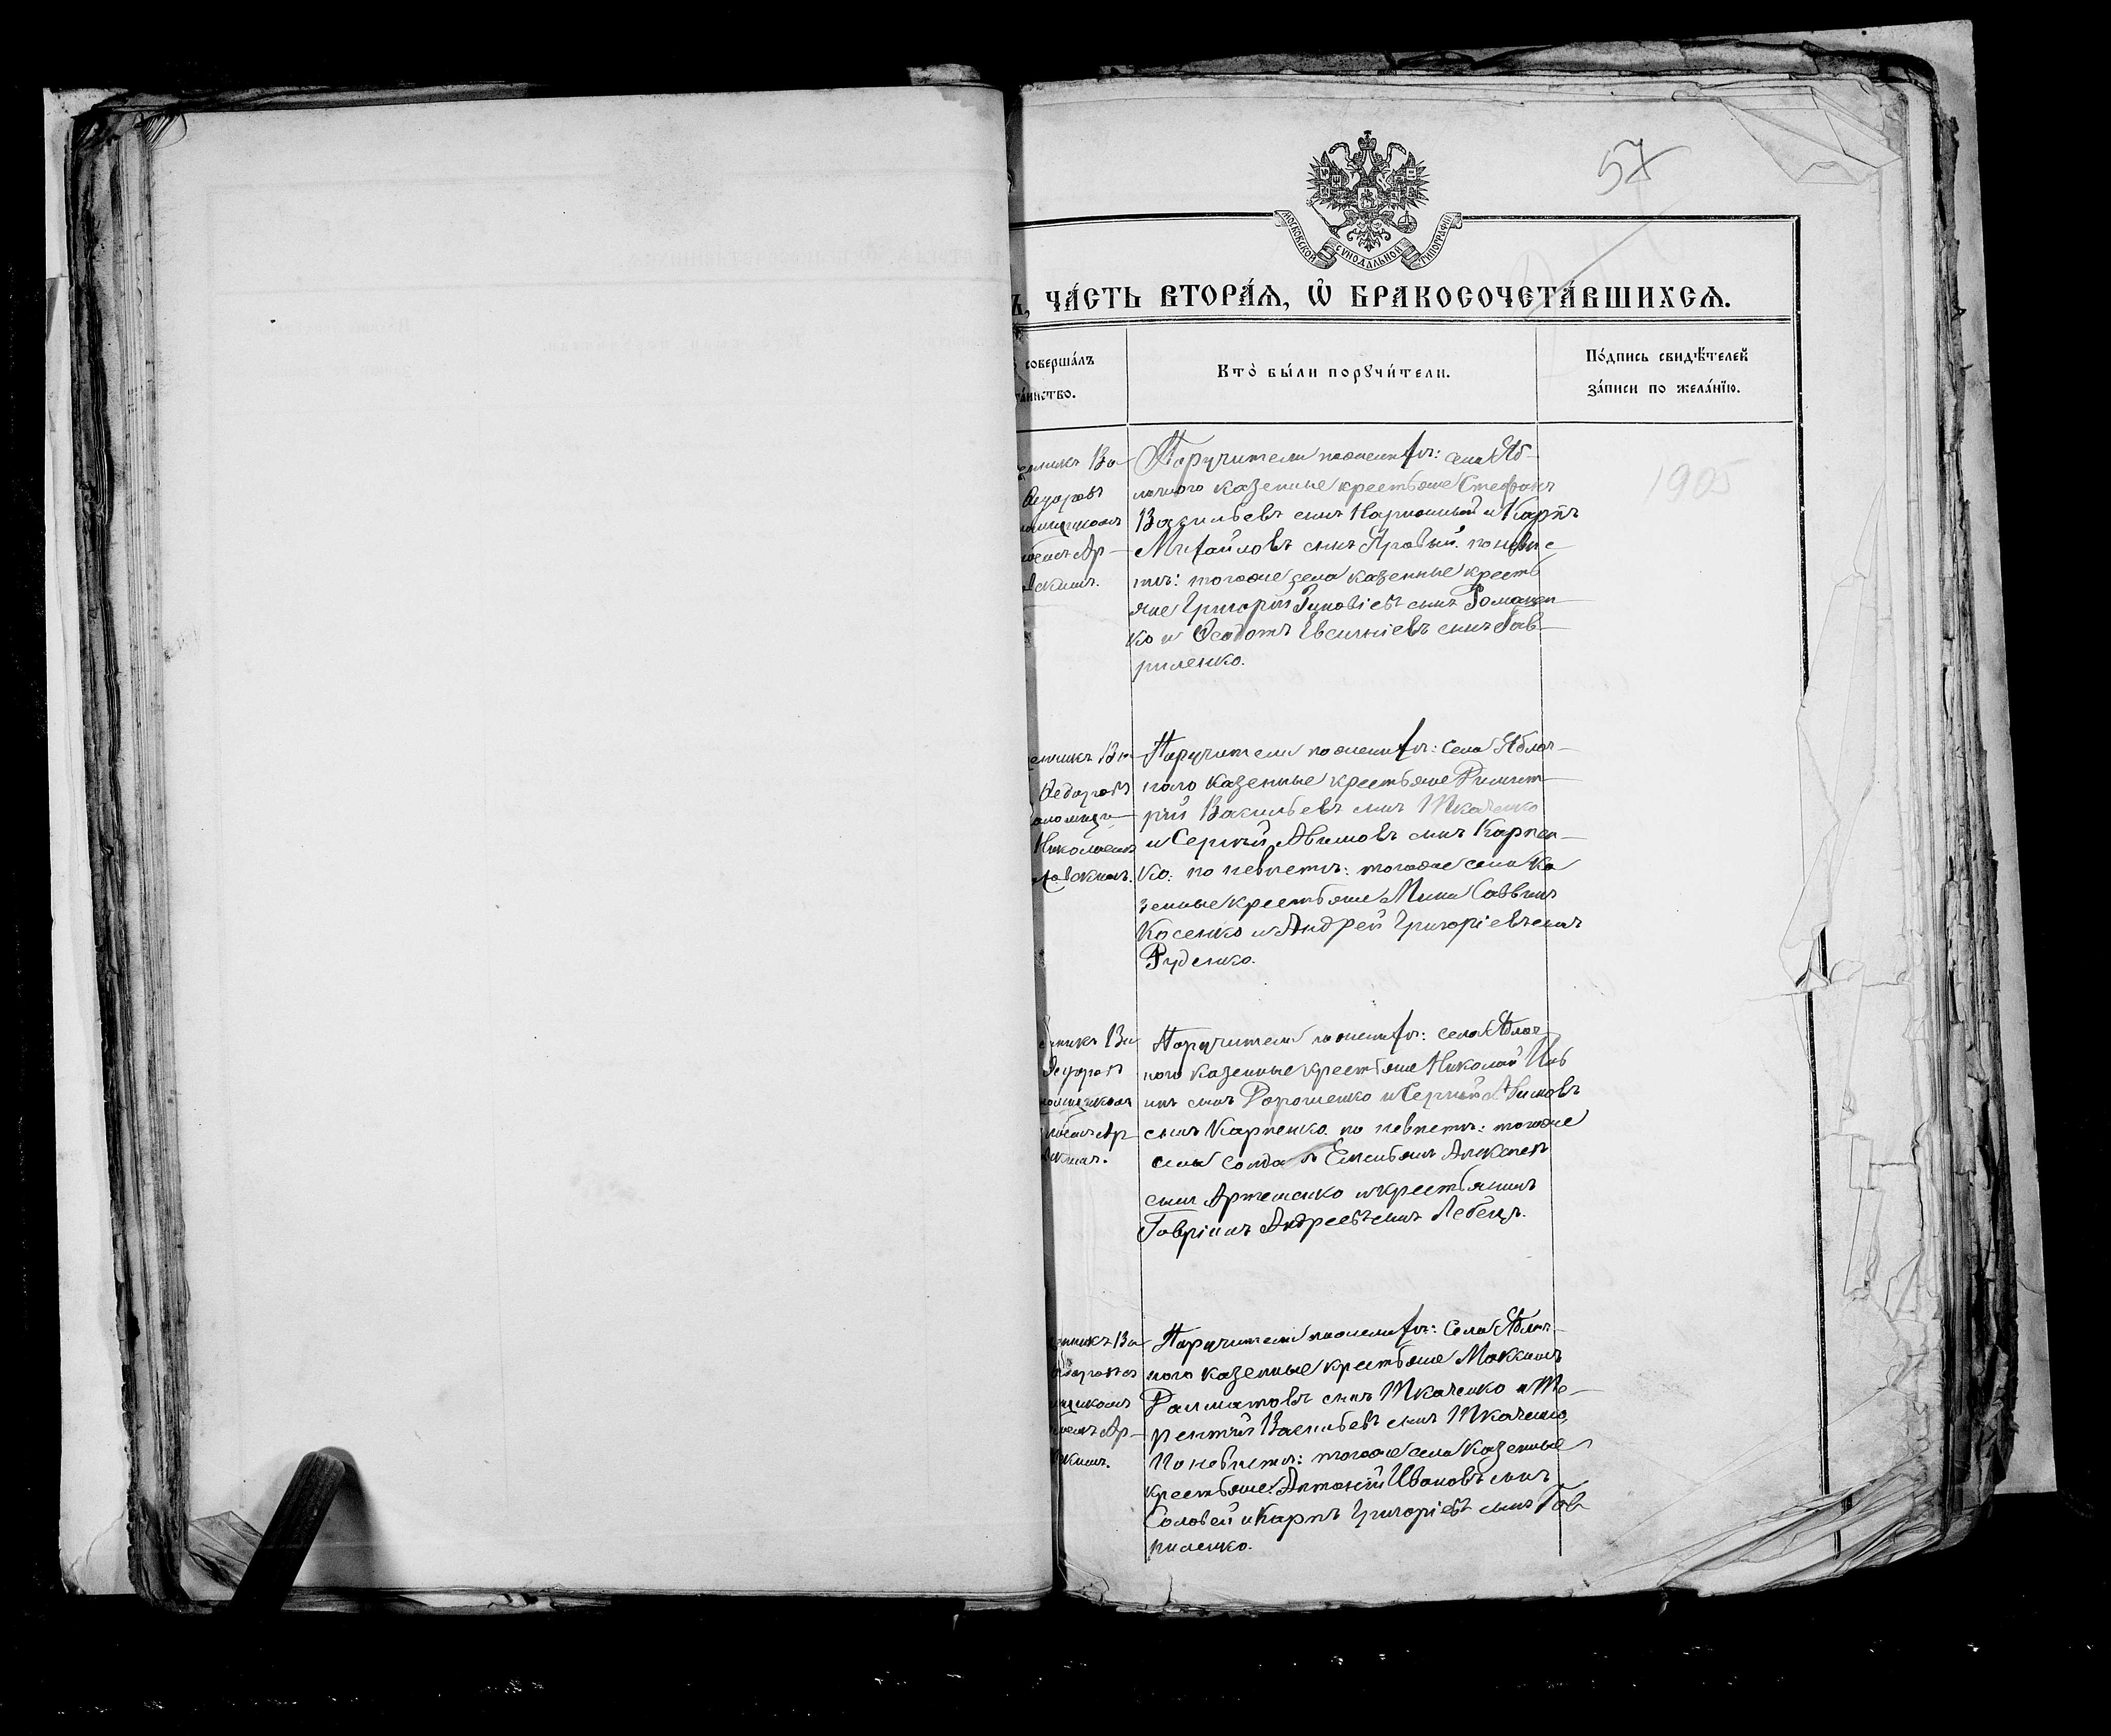 57
МОСКОВСКОЙ СѴНОДАЛЬНОЙ ТИПОГРАФІИ
Ъ, ЧА́СТЬ ВТОРА́Я, Ѡ҆ БРАКОСОЧЕТА́ВШИХСЯ.
совершáлъ
тáинство.
Ктò бы́ли порꙋчи́тели.
По́дпись свидѣ́телей
за́писи по жела́нїю.
1905
Поручители по жених ѣ: села Яб-
лочного казенные крестьяне Стефанъ
Васильевъ сынъ и Карпъ
Михайловъ сынъ Яровый. по невѣс-
тѣ: тогоже села казенные кресть
яне Григорій Зиновіевъ сынъ Романен-
ко и Федотъ Евсигніевъ сынъ Гав-
риленко.
Ва-
Федоровъ
Ар-
Поручители по женихѣ: села Яблоч-
наго казенные крестьяне Димит-
рій Васильевъ сынъ Ткаченко
и Сергѣй Авимовъ сынъ Карпен-
ко: по невѣстѣ: тогоже села ка
зенные крестьяне Мина Саввинъ
Косенко и Андрей Григоріевъ сынъ
Руденко.
Ва-
Федоровъ
Николаемъ
Поручители по женихѣ: села Яблоч
ного казенные крестьяне Николай
сынъ Дорошенко и Сергѣй Авимовъ
сынъ Карпенко по невѣстѣ: тогоже
села солдатъ Емельянъ Алексѣевъ
сынъ Артеменко и крестьянинъ
Гавріилъ Андреевъ сынъ Лебецъ.
Ва
Федоровъ
Ар-
Поручители по женихѣ: Села Яблоч-
ного казенные крестьяне Максимъ
Далматовъ сынъ Ткаченко и Те-
рентій Васильевъ сынъ Ткаченко,
По невѣстѣ: тогоже села казенные
крестьяне: Антоній Ивановъ сынъ
Соловей и Карпъ Григоріевъ сынъ Гав
риленко.
Ва
Ар-